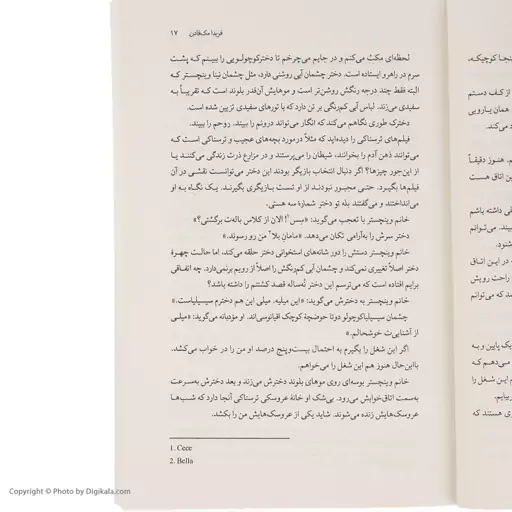 فریدا مک‌فادن ۱۷
لحظه‌ای مکث می‌کنم و در جایم می‌چرخم تا دخترکوچولویی را ببینم که پشت
سرم در راهرو ایستاده است. دختر چشمان آبی روشنی دارد، مثل چشمان نینا وینچستر که
البته فقط چند درجه رنگش روشن‌تر است و موهایش آن‌قدر بلوند است که تقریباً به
سفیدی می‌زند. لباس آبی کم‌رنگی بر تن دارد که با تورهای سفیدی تزیین شده است.
دخترک طوری نگاهم می‌کند که انگار می‌تواند درونم را ببیند. روحم را ببیند.
فیلم‌های ترسناکی را دیده‌اید که مثلاً در مورد بچه‌های عجیب و ترسناکی است که
می‌توانند ذهن آدم را بخوانند، شیطان را می‌پرستند و در مزارع ذرت زندگی می‌کنند یا
از این‌جور چیزها؟ اگر دنبال انتخاب بازیگر بودند این دختر می‌توانست نقشی در آن
فیلم‌ها بگیرد. حتی مجبور نبودند از او تست بازیگری بگیرند. یک نگاه به او
می‌انداختند و می‌گفتند بله تو دختر شمارهٔ سه هستی.
خانم وینچستر با تعجب می‌گوید: «سِس¹! الان از کلاس باله‌ت برگشتی؟»
دختر سرش را به‌آرامی تکان می‌دهد. «مامانِ بلا² من رو رسوند.»
خانم وینچستر دستش را دور شانه‌های استخوانی دختر حلقه می‌کند، اما حالت چهرهٔ
دختر اصلاً تغییری نمی‌کند و چشمان آبی کم‌رنگش را اصلاً از رویم برنمی‌دارد. چه اتفاقی
برایم افتاده است که می‌ترسم این دختر نُه‌ساله قصد کشتنم را داشته باشد؟
خانم وینچستر به دخترش می‌گوید: «این میلیه. میلی این هم دخترم سیسیلیاست.»
چشمان سیسیلیاکوچولو دوتا حوضچهٔ کوچک اقیانوسی‌اند. او مؤدبانه می‌گوید: «میلی،
از آشنایی‌ت خوشحالم.»
اگر این شغل را بگیرم به احتمال بیست‌وپنج درصد او من را در خواب می‌کشد.
بااین‌حال هنوز هم این شغل را می‌خواهم.
خانم وینچستر بوسه‌ای روی موهای بلوند دخترش می‌زند و بعد دخترش به‌سرعت
به‌سمت اتاق‌خوابش می‌رود. بی‌شک او خانهٔ عروسکی ترسناکی آنجا دارد که شب‌ها
عروسک‌هایش زنده می‌شوند. شاید یکی از عروسک‌هایش من را بکشد.
1. Cece
2. Bella
نجا کوچیکه،
از کف دستم
همان یارویی
د می‌کند.
م. هنوز دقیقاً
ین اتاق هست
قی داشته باشم
بیند. می‌توانم
شنود.
ه در این اتاق
راحت رویش
که می‌توانم
یک پایین و به
می‌دهم که
م این شغل را
بیایم.
ی هستند که
Copyright © Photo by Digikala.com